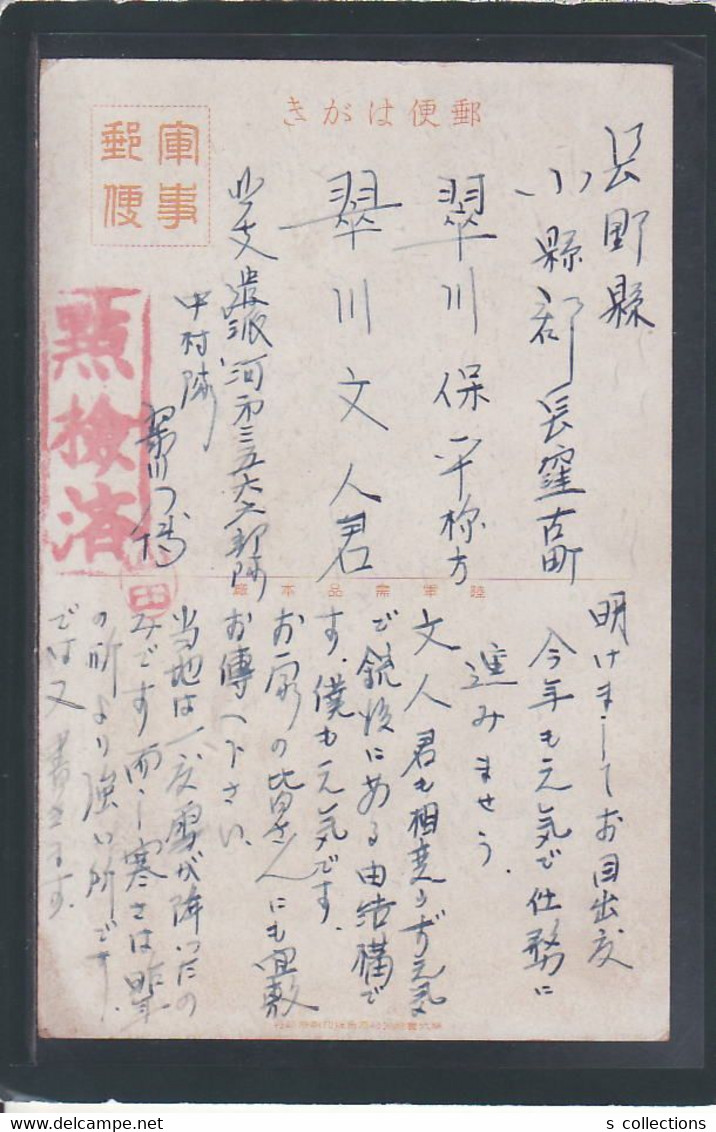 郵便はがき
軍事
郵便
長野縣
小縣郡長窪古町
翠川保平様方
翠川文人君
北支派遣河第三五六二部隊
中村隊
點檢済
陸軍需品本廠
明けましてお目出度
今年も元気で仕務に
進みませう。
文人君も相変らず元気
で銃後にある由結構で
す。僕も元気です。
お家の皆さんにも宜敷
お傳へ下さい。
当地は一度雪が降ったの
みです而し寒さは
の所より強い所です。
では又書きます。
s collections